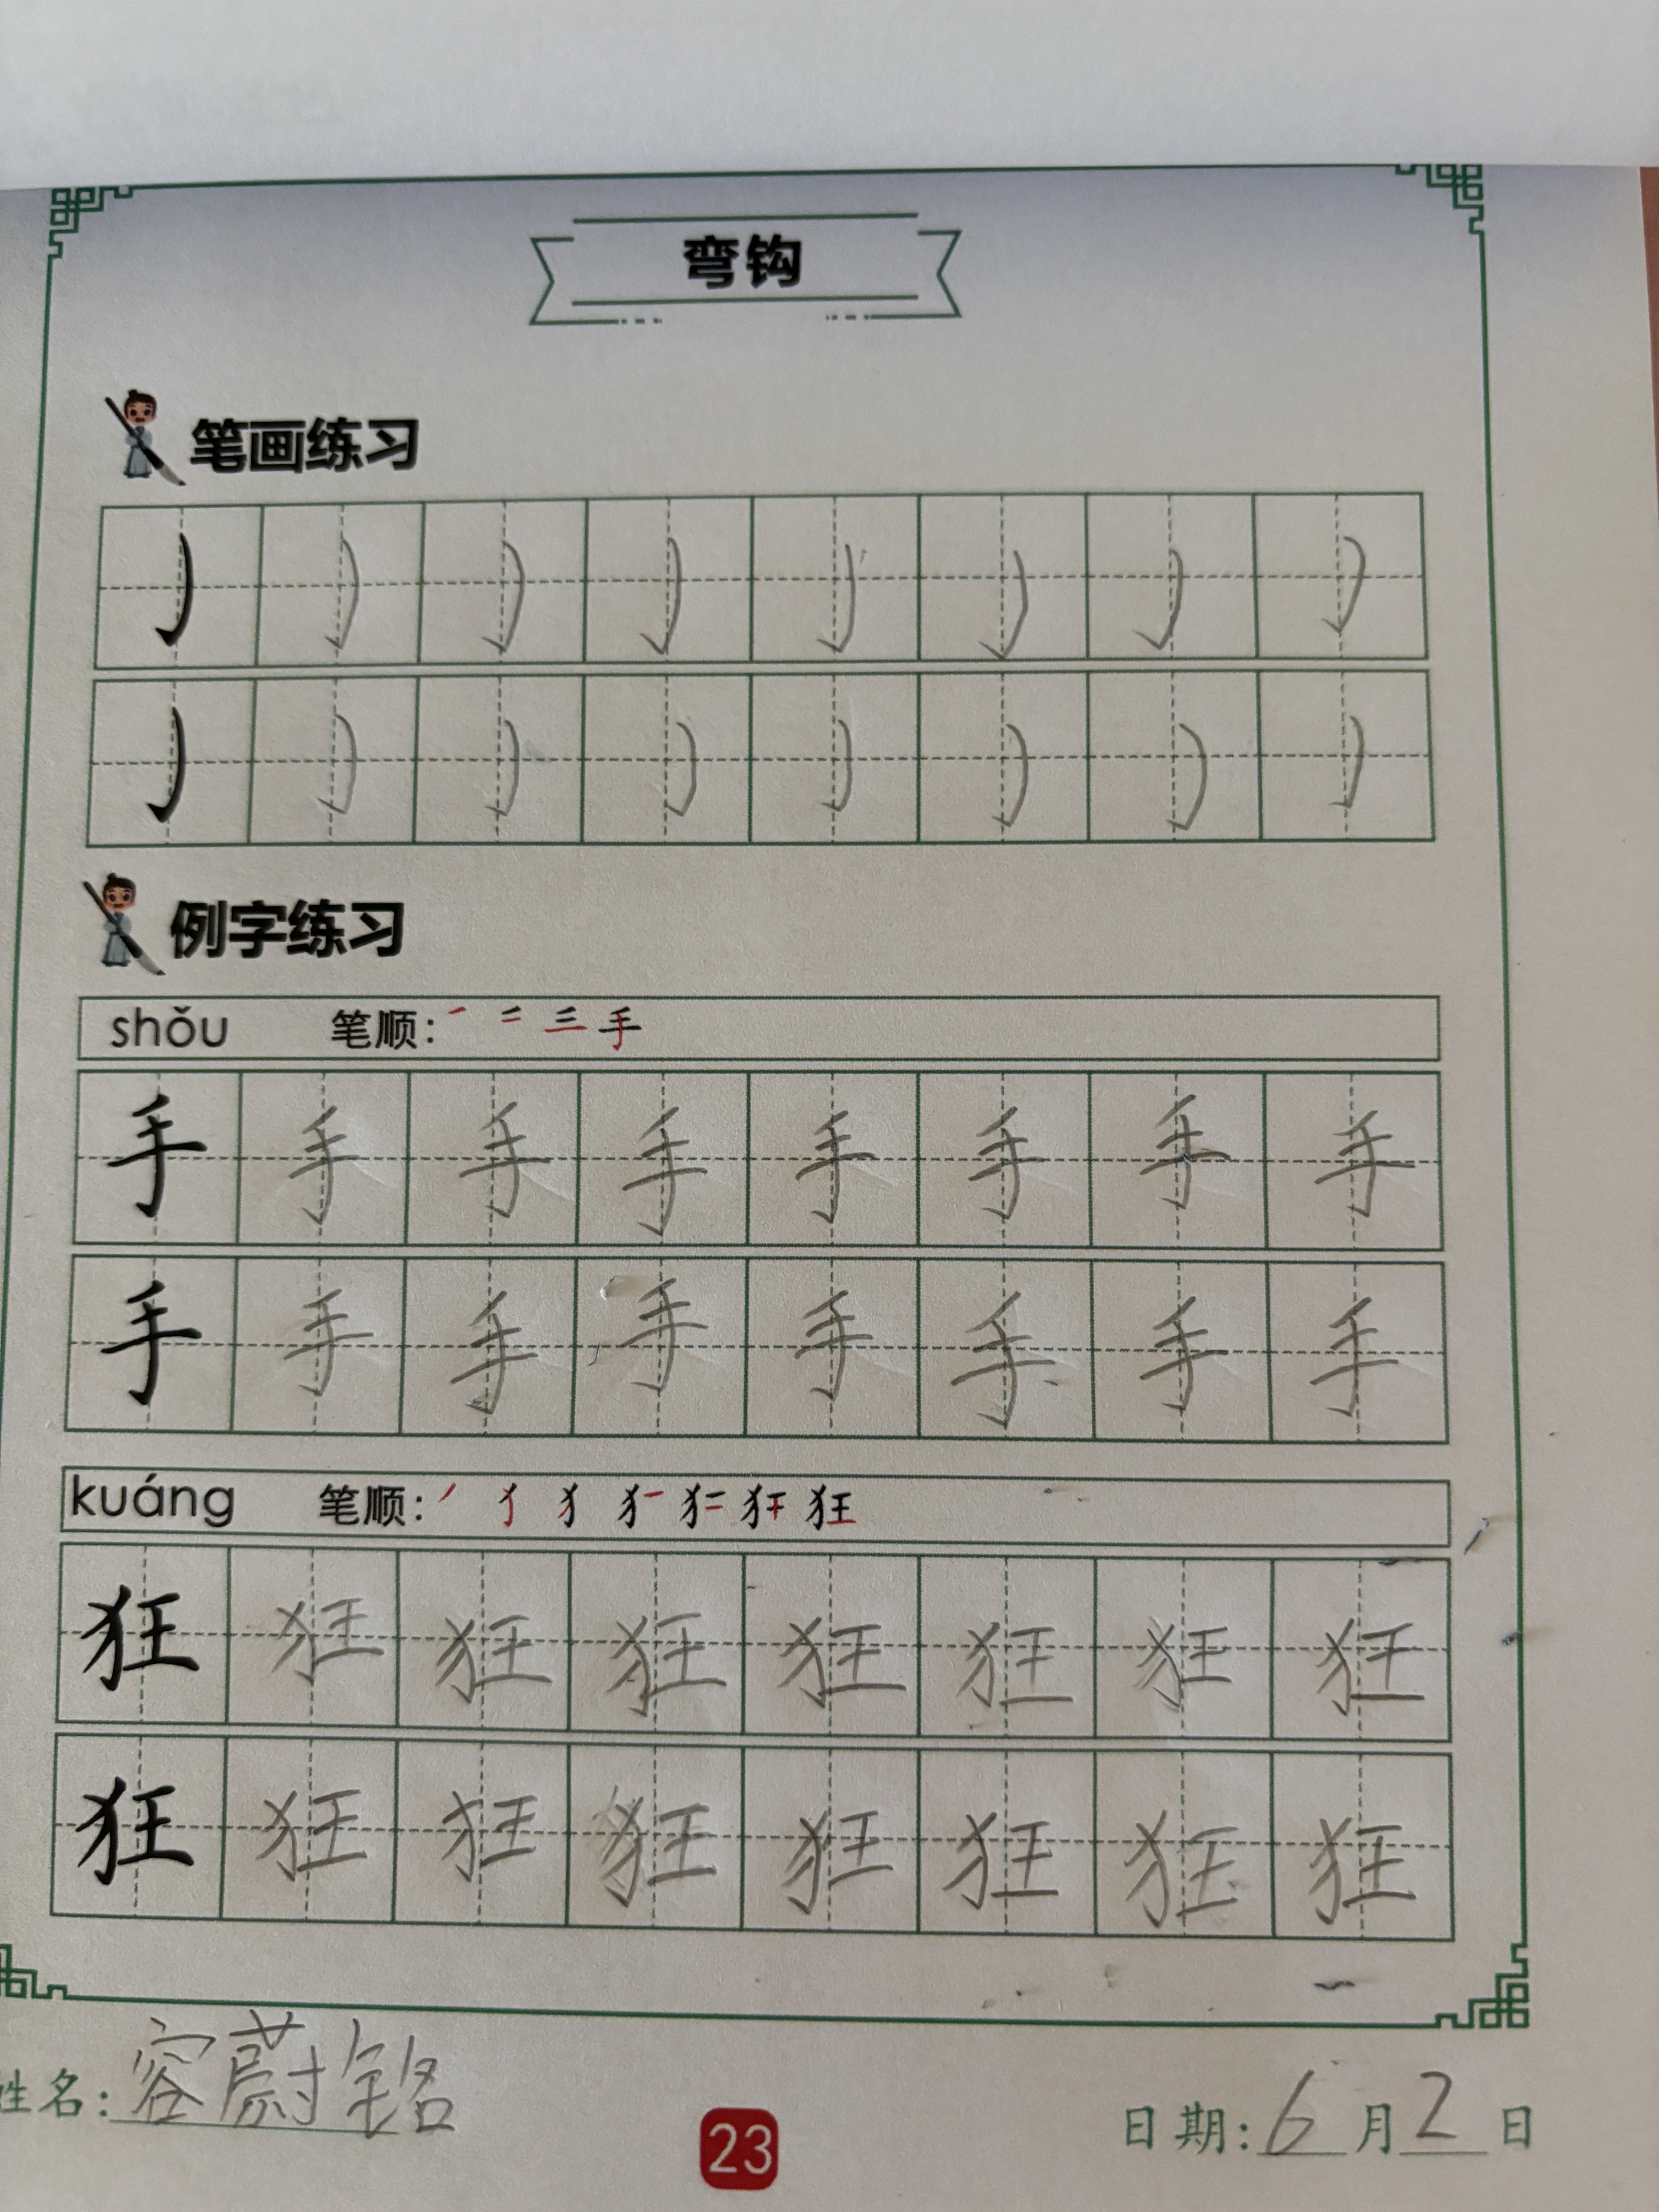 弯钩
笔画练习
例字练习
shǒu 笔顺: 一 二 三 手
手 手 手 手 手 手 手 手
手 手 手 手 手 手 手 手
kuáng 笔顺: 狂
狂 狂 狂 狂 狂 狂 狂 狂
狂 狂 狂 狂 狂 狂 狂 狂
姓名: 容蔚铭
23
日期: 6月2日